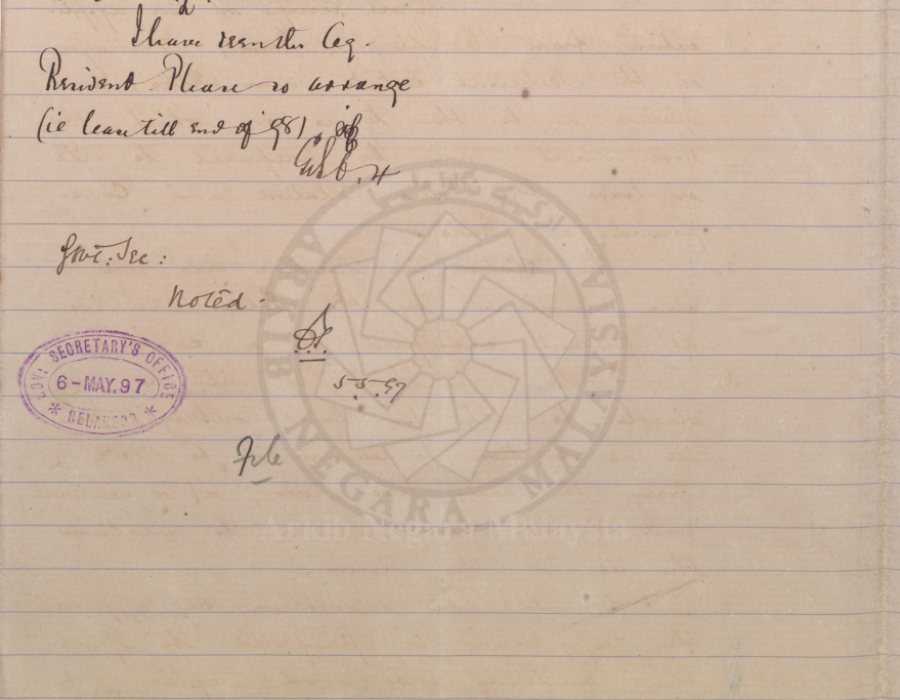 I have seen the Ag.
Resident. Please so arrange
(ie leave till end of 98)
Govt. Sec:
Noted.
5.5.97
GOVT SECRETARY'S OFFICE
6-MAY.97
* SELANGOR *
File
ARKIB NEGARA MALAYSIA
Arkib Negara Malaysia